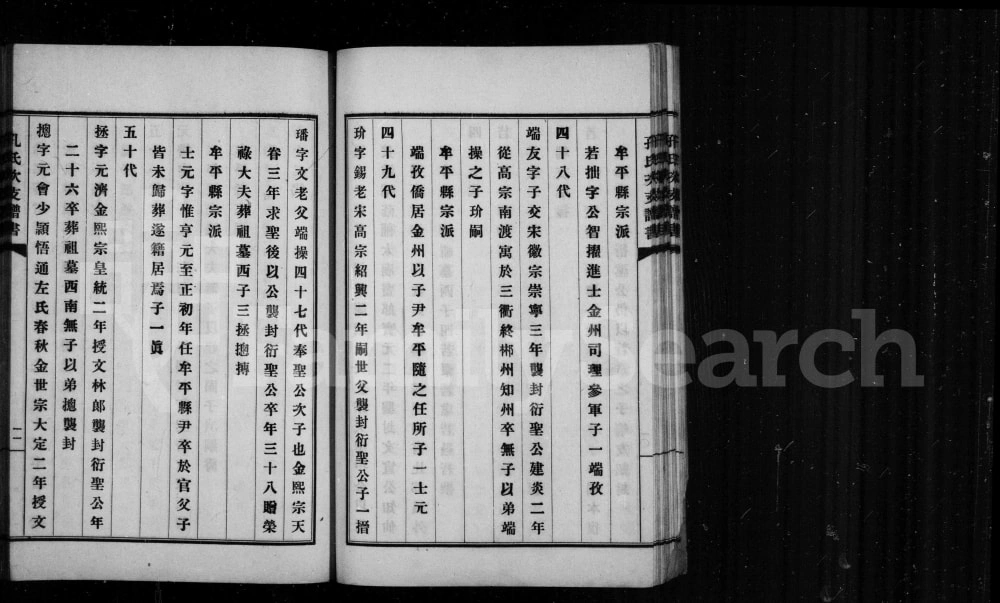 牟平縣宗派
若拙字公智擢進士金州司理參軍子一端孜
四十八代
端友字子交宋徽宗崇寧三年襲封衍聖公建炎二年
從高宗南渡寓於三衢終郴州知州卒無子以弟端
操之子玠嗣
牟平縣宗派
端孜僑居金州以子尹牟平隨之任所子一士元
四十九代
玠字錫老宋高宗紹興二年嗣世父襲封衍聖公子一搢
璠字文老父端操四十七代奉聖公次子也金熙宗天
眷三年求聖後以公襲封衍聖公卒年三十八贈榮
祿大夫葬祖墓西子三拯摠摶
牟平縣宗派
士元字惟亨元至正初年任牟平縣尹卒於官父子
皆未歸葬遂籍居焉子一眞
五十代
拯字元濟金熙宗皇統二年授文林郎襲封衍聖公年
二十六卒葬祖墓西南無子以弟摠襲封
摠字元會少頴悟通左氏春秋金世宗大定二年授文
孔氏次支譜書
FamilySearch